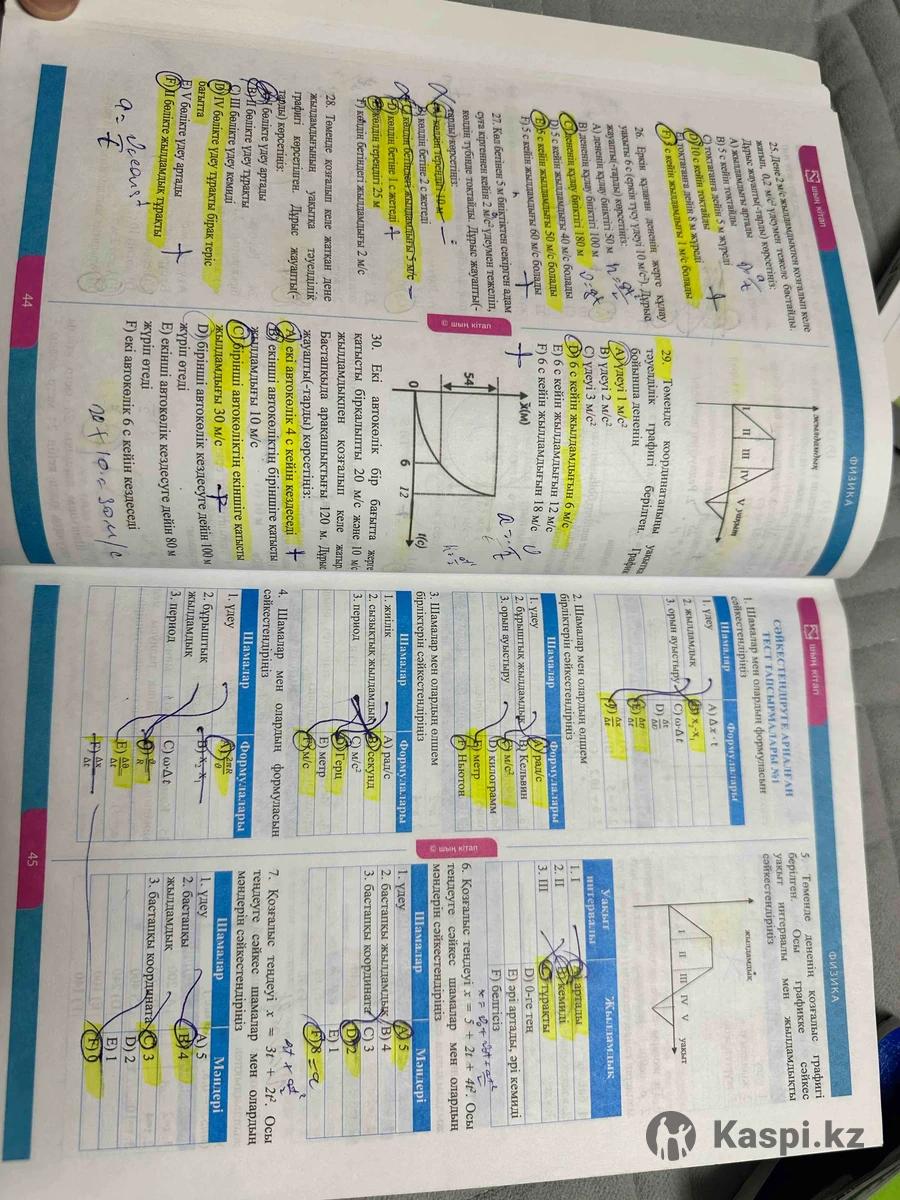 шың кітап
ФИЗИКА
25. Дене 2 м/с жылдамдықпен қозғалып келе
жатып, 0,2 м/с² үдеумен тежеле бастайды.
Дұрыс жауапты(-тарды) көрсетіңіз:
A) жылдамдығы артады
B) 5 с кейін тоқтайды
C) тоқтағанға дейін 5 м жүреді
D) 10 с кейін тоқтайды
E) тоқтағанға дейін 8 м жүреді
F) 5 с кейін жылдамдығы 1 м/с болады
26. Еркін құлаған дененің жерге құлау
уақыты 6 с (еркін түсу үдеуі 10 м/с²). Дұрыс
жауапты(-тарды) көрсетіңіз:
A) дененің құлау биіктігі 50 м
B) дененің құлау биіктігі 100 м
C) дененің құлау биіктігі 180 м
D) 5 с кейін жылдамдығы 40 м/с болады
E) 5 с кейін жылдамдығы 50 м/с болады
F) 5 с кейін жылдамдығы 60 м/с болады
27. Көл бетінен 5 м биіктіктен секірген адам
суға кіргеннен кейін 2 м/с² үдеумен тежеліп,
көлдің түбінде тоқтайды. Дұрыс жауапты(-
тарды) көрсетіңіз:
A) көлдің тереңдігі 10 м
B) көлдің бетіне 2 с жетеді
C) көлдің бетіндегі жылдамдығы 5 м/с
D) көлдің бетіне 1 с жетеді
E) көлдің тереңдігі 25 м
F) көлдің бетіндегі жылдамдығы 2 м/с
28. Төменде қозғалып келе жатқан дене
жылдамдығының уақытқа тәуелділік
графигі көрсетілген. Дұрыс жауапты(-
тарды) көрсетіңіз:
A) I бөлікте үдеу артады
B) II бөлікте үдеу тұрақты
C) III бөлікте үдеу кемиді
D) IV бөлікте үдеу тұрақты бірақ теріс
бағытта
E) V бөлікте үдеу артады
F) II бөлікте жылдамдық тұрақты
44
жылдамдық
I II III IV V уақыт
29. Төменде координатаның уақытқа
тәуелділік графигі берілген. График
бойынша дененің
A) үдеуі 1 м/с²
B) үдеуі 2 м/с²
C) үдеуі 3 м/с²
D) 6 с кейін жылдамдығын 6 м/с
E) 6 с кейін жылдамдығын 12 м/с
F) 6 с кейін жылдамдығын 18 м/с
x(м)
54
0 6 12 t(с)
30. Екі автокөлік бір бағытта жерге
қатысты бірқалыпты 20 м/с және 10 м/с
жылдамдықпен қозғалып келе жатыр.
Бастапқыда арақашықтығы 120 м. Дұрыс
жауапты(-тарды) көрсетіңіз:
A) екі автокөлік 4 с кейін кездеседі
B) екінші автокөліктің біріншіге қатысты
жылдамдығы 10 м/с
C) бірінші автокөліктің екіншіге қатысты
жылдамдығы 30 м/с
D) бірінші автокөлік кездесуге дейін 100 м
жүріп өтеді
E) екінші автокөлік кездесуге дейін 80 м
жүріп өтеді
F) екі автокөлік 6 с кейін кездеседі
20+10=30м/с
© шың кітап
шың кітап
ФИЗИКА
СӘЙКЕСТЕНДІРУГЕ АРНАЛҒАН
ТЕСТ ТАПСЫРМАЛАРЫ №1
1. Шамалар мен олардың формуласын
сәйкестендіріңіз
Шамалар Формулалары
1. үдеу
2. жылдамдық
3. орын ауыстыру
A) Δx · t
B) x₂-x₁
C) ω·Δt
2. Шамалар мен олардың өлшем
бірліктерін сәйкестендіріңіз
Шамалар Формулалары
1. үдеу
2. бұрыштық жылдамдық
3. орын ауыстыру
A) рад/с
B) Кельвин
C) м/с²
D) килограмм
E) метр
F) Ньютон
3. Шамалар мен олардың өлшем
бірліктерін сәйкестендіріңіз
Шамалар Формулалары
1. жиілік
2. сызықтық жылдамдық
3. период
A) рад/с
B) секунд
C) м/с²
D) Герц
E) метр
F) м/с
4. Шамалар мен олардың формуласын
сәйкестендіріңіз
Шамалар Формулалары
1. үдеу
2. бұрыштық
жылдамдық
3. период
A) 2πR/υ
B) x₂-x₁
C) ω·Δt
F) Δx/Δt
45
5. Төменде дененің қозғалыс графигі
берілген. Осы графикке сәйкес
уақыт интервалы мен жылдамдықты
сәйкестендіріңіз
жылдамдық
I II III IV V уақыт
Уақыт
интервалы
Жылдамдық
1. I
2. II
3. III
A) артады
B) кемиді
C) тұрақты
D) 0-ге тең
E) әрі артады, әрі кемиді
F) белгісіз
6. Қозғалыс теңдеуі x = 5 + 2t + 4t². Осы
теңдеуге сәйкес шамалар мен олардың
мәндерін сәйкестендіріңіз
Шамалар Мәндері
1. үдеу
2. бастапқы жылдамдық
3. бастапқы координата
A) 5
B) 4
C) 3
D) 2
E) 1
F) 8 = a
7. Қозғалыс теңдеуі x = 3t + 2t². Осы
теңдеуге сәйкес шамалар мен олардың
мәндерін сәйкестендіріңіз
Шамалар Мәндері
1. үдеу
2. бастапқы
жылдамдық
3. бастапқы координата
A) 5
B) 4
C) 3
D) 2
E) 1
F) 0
© шың кітап
Kaspi.kz